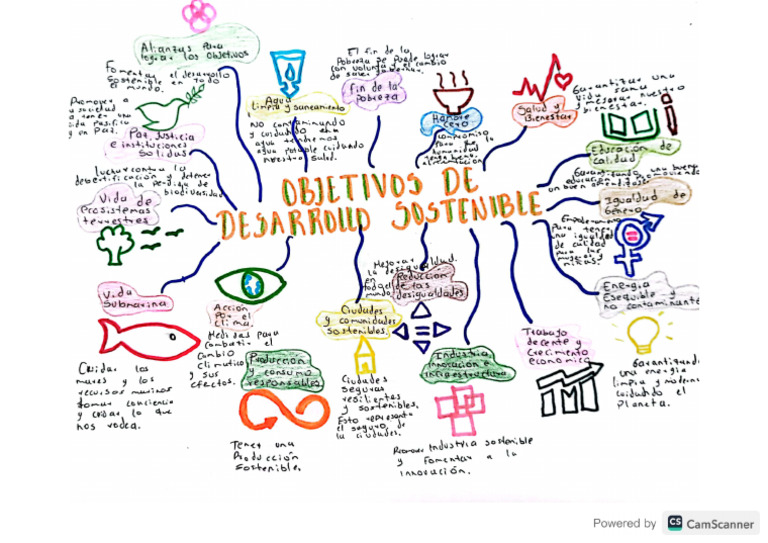 OBJETIVOS DE
DESARROLLO SOSTENIBLE
Alianzas Para
lograr los Objetivos
Fomentar el desarrollo
Sostenible en todo
el mundo.
Agua
Limpia y saneamiento
NO contaminando
y cuidando el
agua tendremos
agua potable cuidando
nuestra salud.
El fin de la
Pobreza se puede lograr
con voluntad y el cambio
de
fin de la
Pobreza
Hambre
cero
compromiso
Para que la
humanidad
tenga buena
alimentación
Salud y
Bienestar
Garantizar una
vida sana
y mejorar nuestro
bienestar.
Educación de
Calidad
Garantizando una buena
educación
un buen aprendizaje
Igualdad de
Género
Empoderamiento
Para tener
una igualdad
de calidad
Para las
mujeres y
niñas.
Energia
Esequible y
no contaminante
Garantizando
una energia
limpia y moderna
cuidando el
Planeta.
Trabajo
decente y
Crecimiento
economico
Industria
Innovación e
infraestructura
Promover Industria sostenible
y Fomentar a la
innovación.
Mejorar
la desigualdad.
en todo el
mundo
Reducción
de las
desigualdades.
Ciudades
y comunidades
Sostenibles.
Ciudades
Seguras
resilientes
y sostenibles.
Esto representa
el seguro, de
la ciudades.
Producción
y consumo
responsables
Tener una
Producción
Sostenible.
Acción
Por el
Clima.
Medidas Para
combatir el
cambio
climatico
y sus
efectos.
Vida
Submarina
Cuidar los
mares y los
recursos marinos
tomar conciencia
y cuidar lo que
nos rodea.
Vida de
Ecosistemas
terrestres
Luchar contra la
desertificación y detener
la perdida de
biodiversidad
Paz, Justicia
e instituciones
Solidas
Promover
a tener una
vida pacifica
y en Paz.
Powered by CS CamScanner